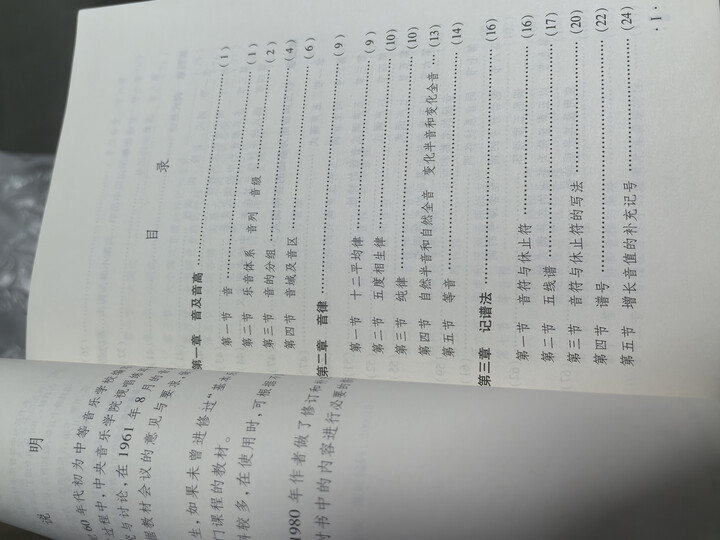 说 明
60年代初为中等音乐学校
过程中,中央音乐学院视唱练
与讨论,在1961年8月的
教材会议的意见与要求,
生,如果未曾进修过“基本
门课程的教材。
较多,在使用时,可根据
1980年作者做了修订和
对书中的内容进行必要的
目 录
第一章 音及音高……(1)
第一节 音……(1)
第二节 乐音体系 音列 音级……(2)
第三节 音的分组……(4)
第四节 音域及音区……(6)
第二章 音律……(9)
第一节 十二平均律……(9)
第二节 五度相生律……(10)
第三节 纯律……(10)
第四节 自然半音和自然全音 变化半音和变化全音…(13)
第五节 等音……(14)
第三章 记谱法……(16)
第一节 音符与休止符……(16)
第二节 五线谱……(17)
第三节 音符与休止符的写法……(20)
第四节 谱号……(22)
第五节 增长音值的补充记号……(24)
·1·